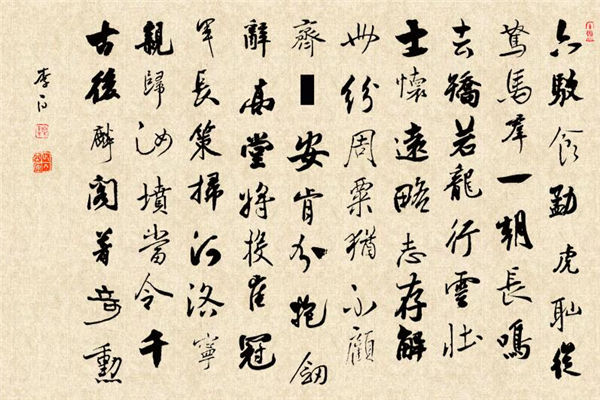 六駮食勐虎恥從
駑馬羣一朝長鳴
去矯若龍行雲壯
士懷遠略志存解
世紛周粟猶不顧
齊安肯分抱劍
辭高堂將投崔冠
軍長策掃河洛寧
親歸汝墳當令千
古後麟閣著奇勳
李白